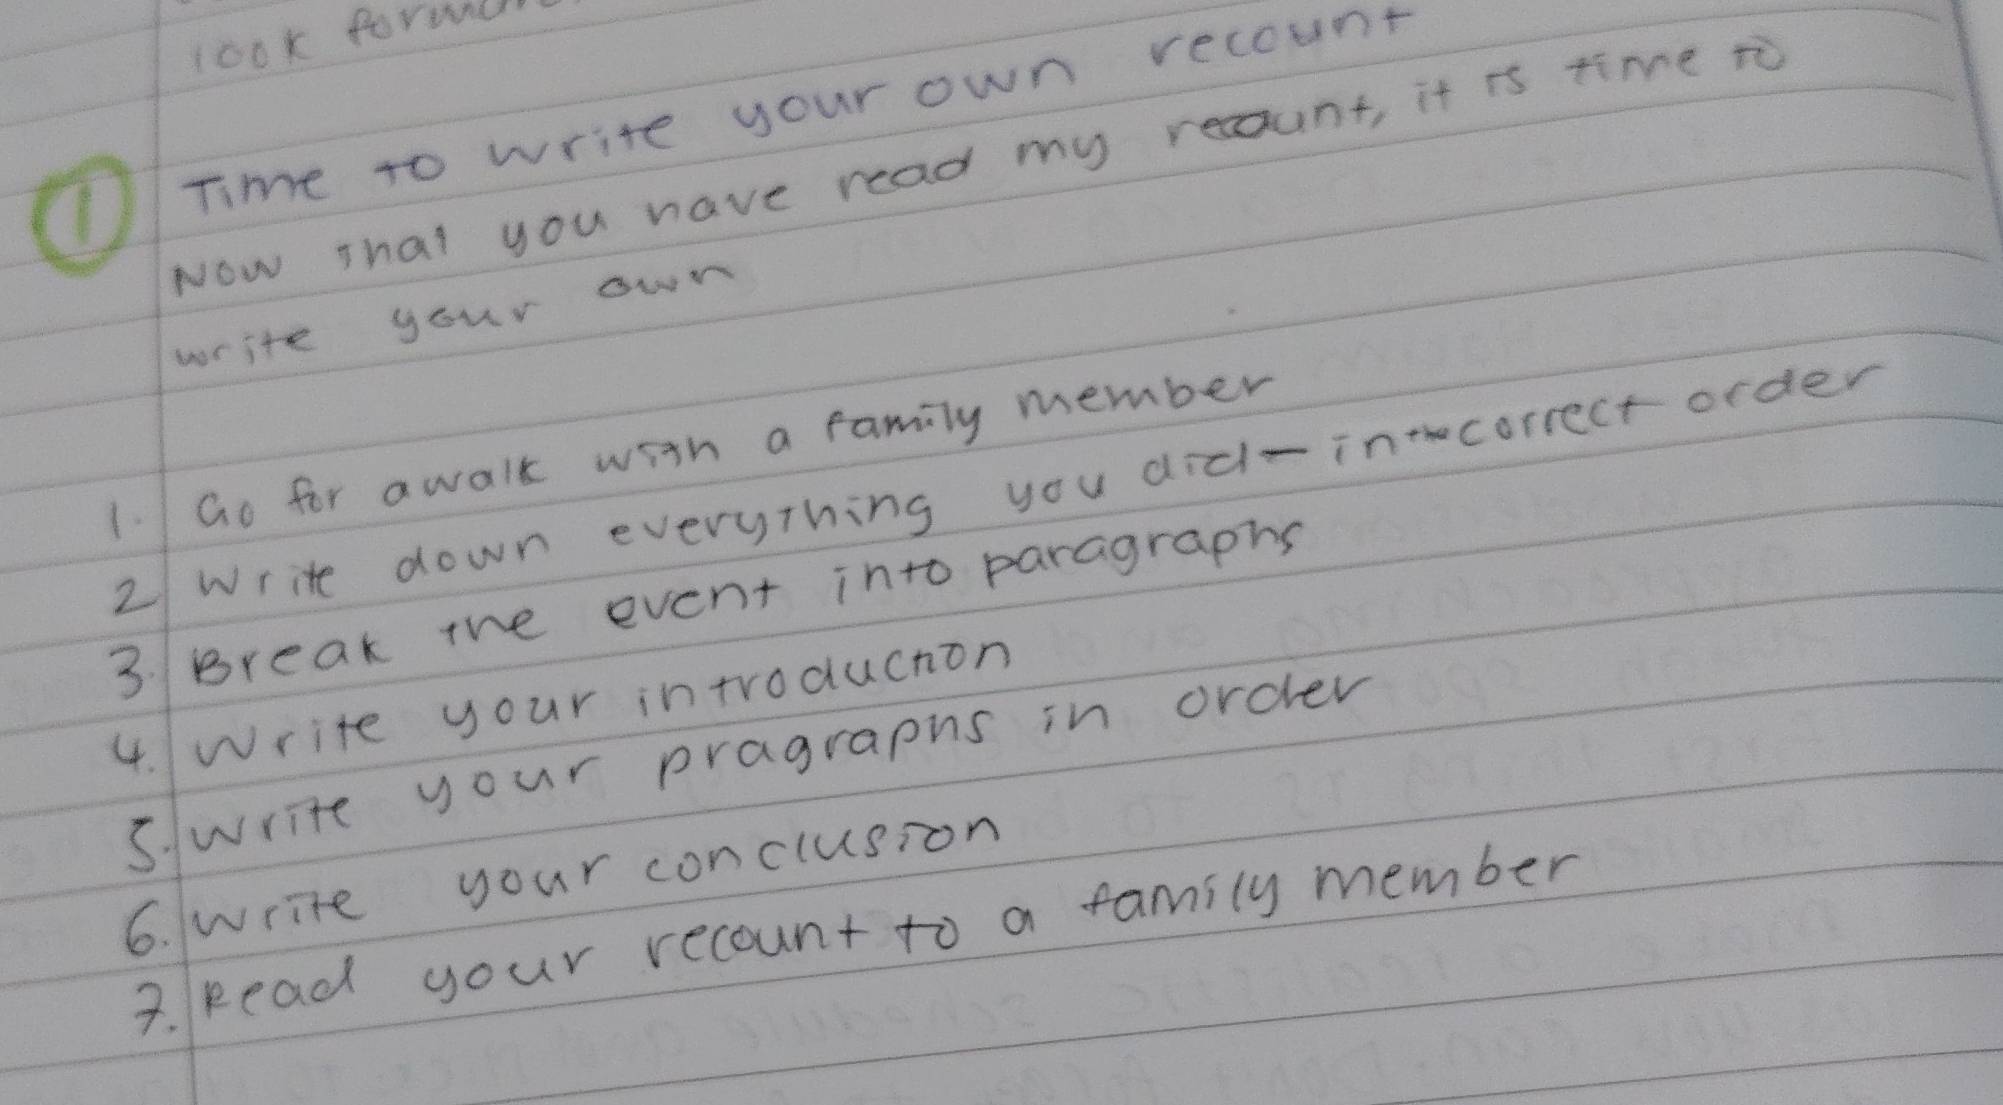 look
Time to write your own recount
Now that you have read my recount, it is time to
write your own
1. Go for a walk with a family member
2 Write down everything you did - in the correct order
3. Break the event into paragraphs
4. Write your introduction
5. Write your pragraphs in order
6. Write your conclusion
7. Read your recount to a family member
1